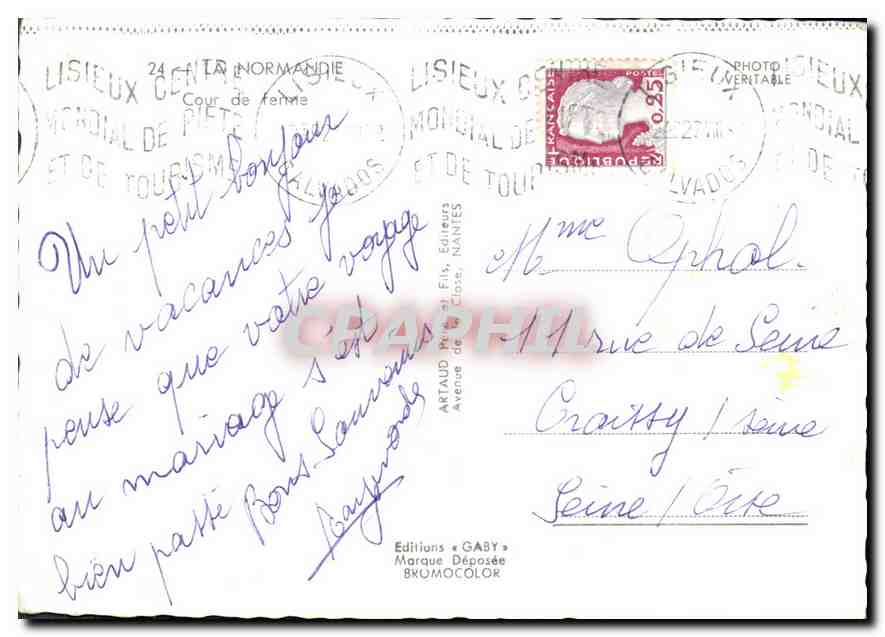 24 - LA NORMANDIE
Cour de ferme
LISIEUX CENTRE
MONDIAL DE PIETE
ET DE TOURISME
LISIEUX
CALVADOS
LISIEUX CENTRE
MONDIAL DE
ET DE TOURISME
REPUBLIQUE FRANCAISE
POSTE
0,25
CALVADOS
LISIEUX CENTRE
MONDIAL DE
ET DE TOU
PHOTO
VERITABLE
Un petit bonjour
de vacances je
pense que votre voyage
au mariage s'est
bien passé Bons Souvenirs
Raymonde
ARTAUD Père et Fils, Editeurs
Avenue de la Close, NANTES
CPAPHIL
Mme Ophol.
11 rue de Seine
Croissy / seine
Seine / Oise
Editions « GABY »
Marque Déposée
BROMOCOLOR